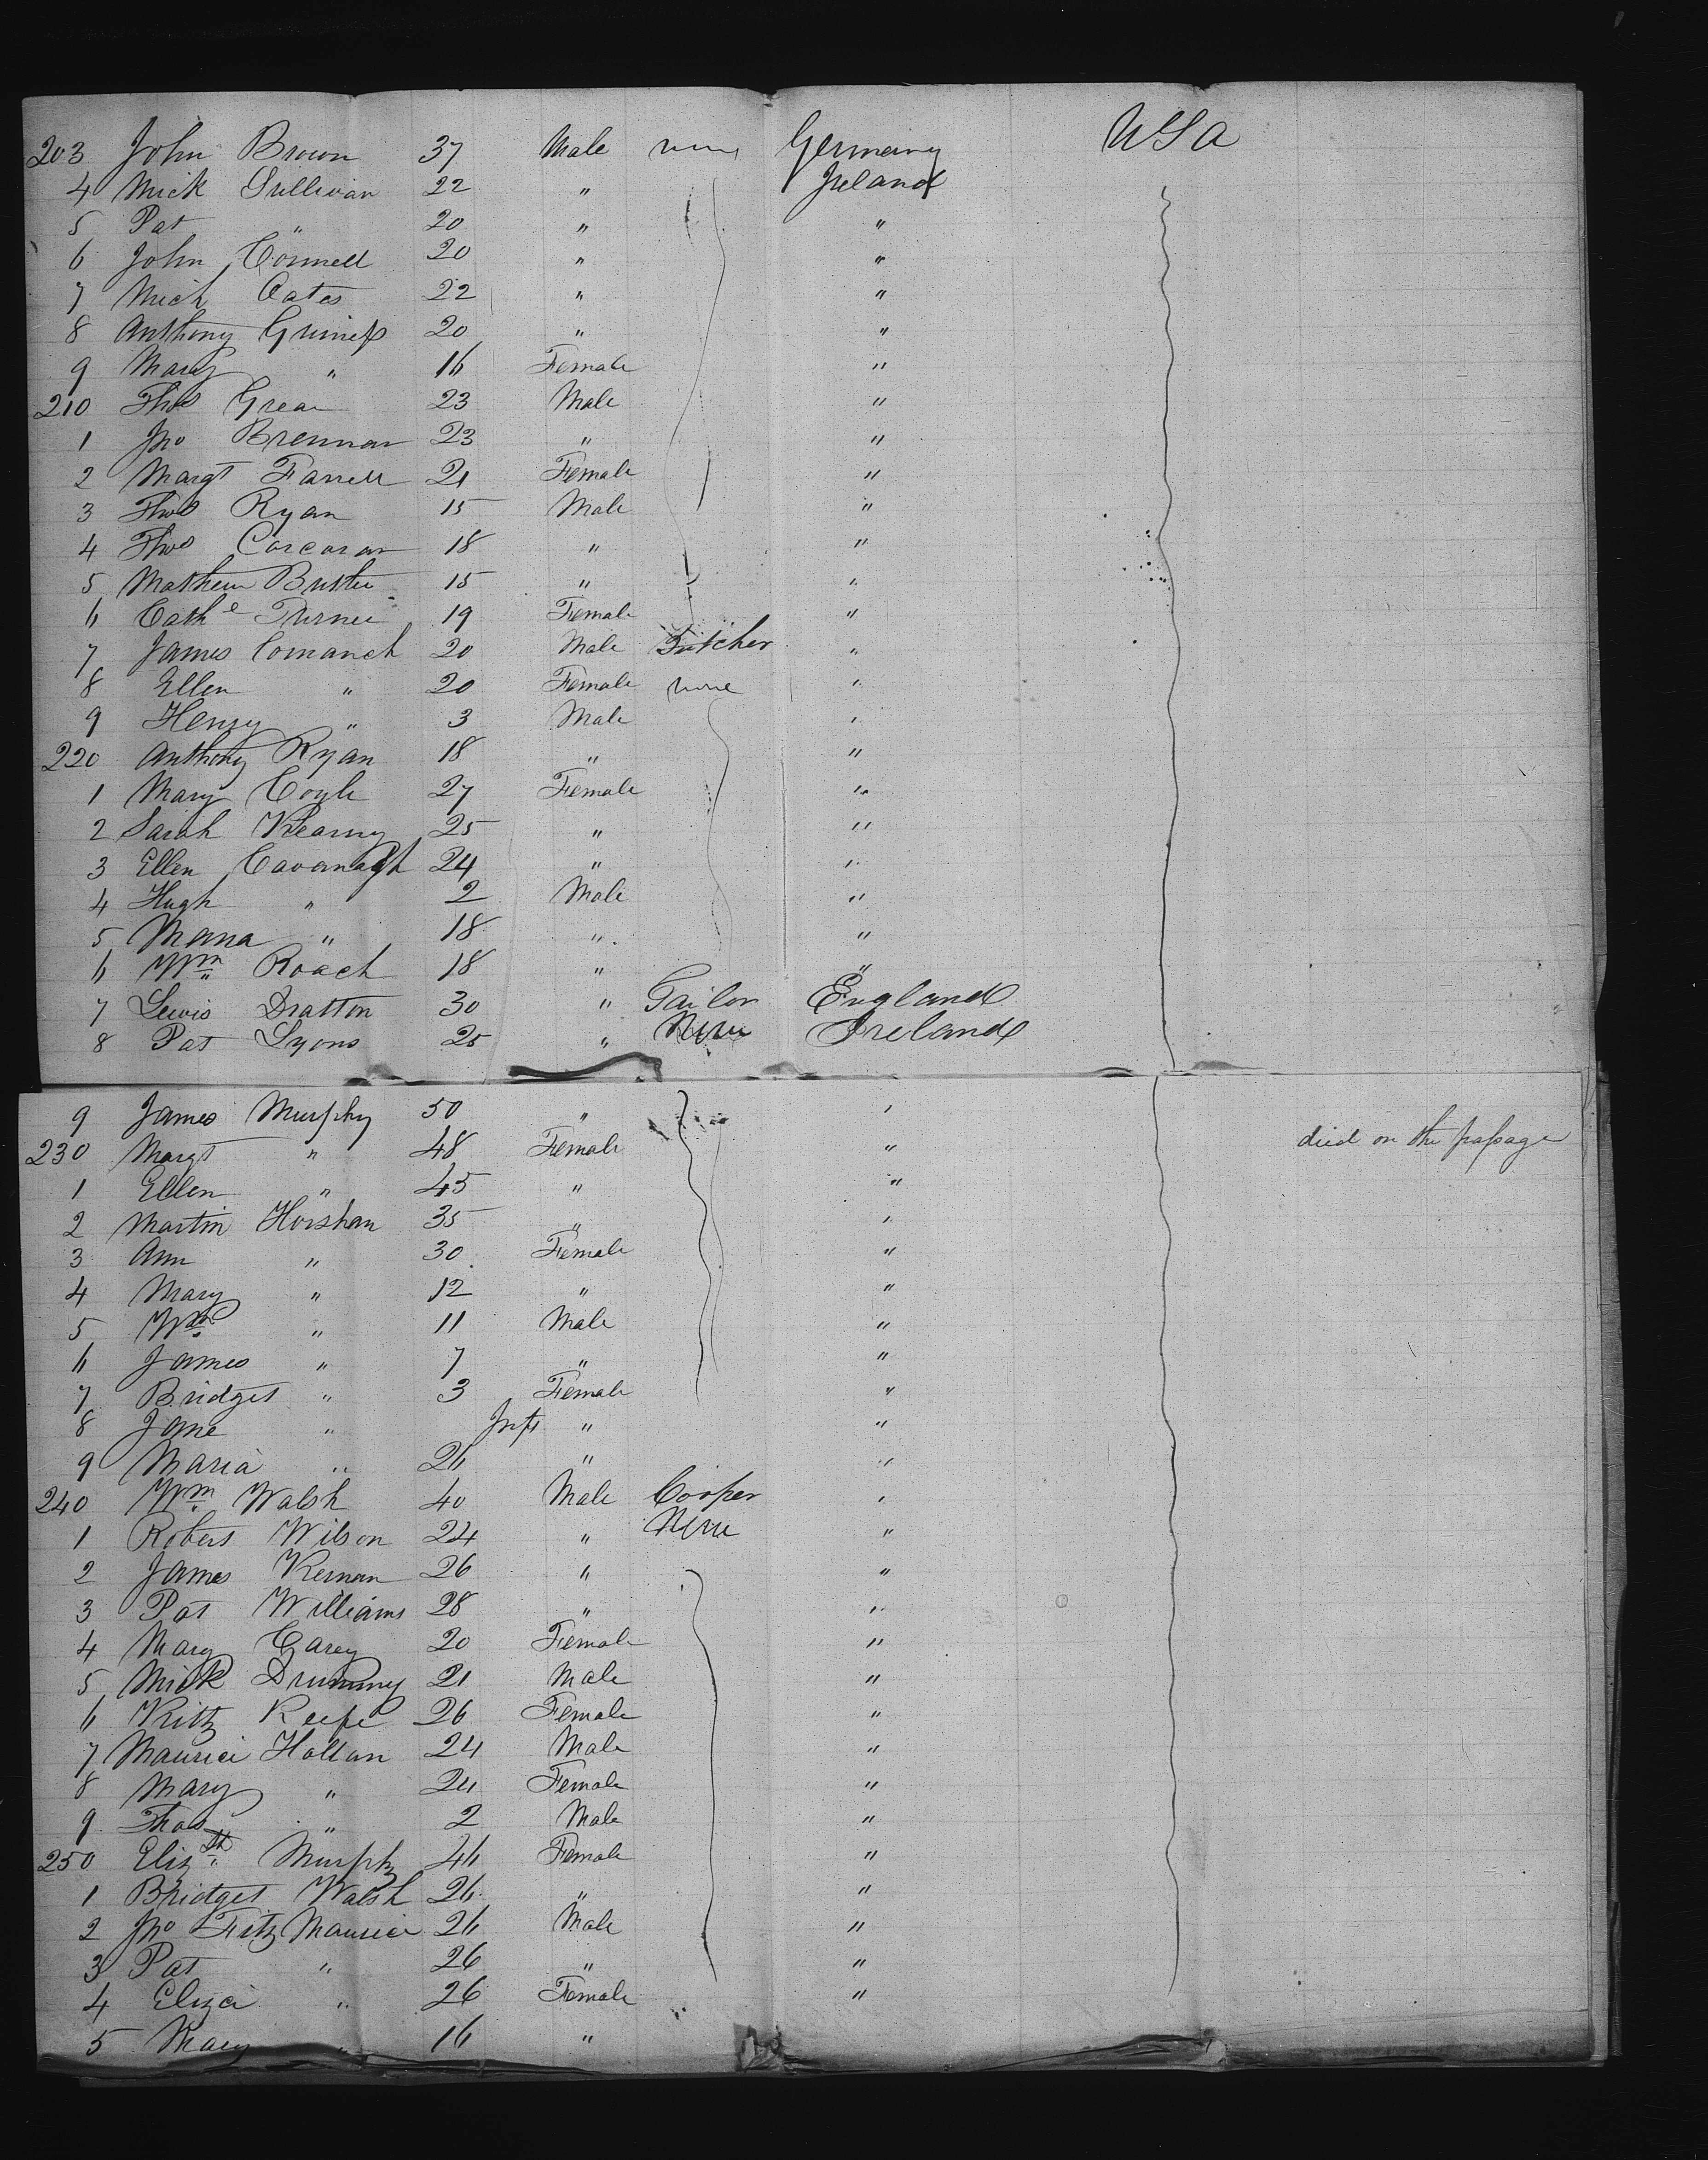 203 John Brown 37 Male none Germany USA
4 Mick Sullivan 22 " Ireland
5 Pat " 20 " "
6 John Connell 20 " "
7 Mich Oates 22 " "
8 Anthony Grimes 20 " "
9 Mary " 16 Female "
210 Thos Grean 23 Male "
1 Jno Brennan 23 " "
2 Margt Farrell 21 Female "
3 Thos Ryan 15 Male "
4 Thos Corcoran 18 " "
5 Mathew 15 " "
6 Cathe 19 Female "
7 James Comanch 20 Male "
8 Ellen " 20 Female none "
9 Henry " 3 Male "
220 Anthony Ryan 18 " "
1 Mary Coyle 27 Female "
2 Sarah Kearny 25 " "
3 Ellen Cavanagh 24 " "
4 Hugh " 2 Male "
5 Mana " 18 " "
6 Wm Roach 18 " "
7 Lewis Dratton 30 " Tailor England
8 Pat Lyons 25 " None Ireland
9 James Murphy 50 " "
230 Margt " 48 Female " died on the passage
1 Ellen " 45 " "
2 Martin Horshan 35 " "
3 Ann " 30 Female "
4 Mary " 12 " "
5 Wm " 11 Male "
6 James " 7 " "
7 Bridget " 3 Female "
8 Jane " Inft " "
9 Maria " 26 " "
240 Wm Walsh 40 Male Cooper "
1 Robert Wilson 24 " None "
2 James Kernan 26 " "
3 Pat Williams 28 " "
4 Mary Carey 20 Female "
5 Mick Drummy 21 Male "
6 Kitty Keefe 26 Female "
7 Maurice Holtan 24 Male "
8 Mary " 24 Female "
9 Thos " 2 Male "
250 Elizth Murphy 46 Female "
1 Bridget Walsh 26 " "
2 Jno FitzMaurice 26 Male "
3 Pat " 26 " "
4 Eliza " 26 Female "
5 Mary " 16 "